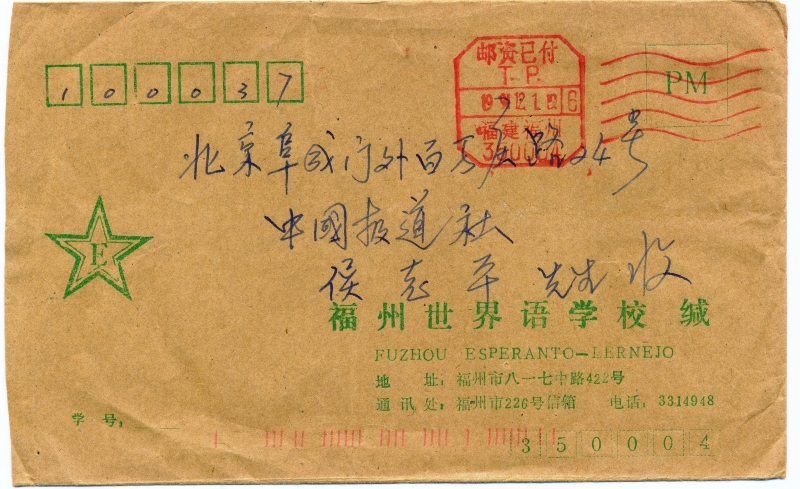 100037
邮资已付
T.P.
PM
福建福州
350004
北京阜成门外百万庄路24号
中國报道社
侯志平 先生 收
E
福州世界语学校 缄
FUZHOU ESPERANTO-LERNEJO
地 址: 福州市八一七中路422号
通讯处: 福州市226号信箱 电话: 3314948
学号:
350004